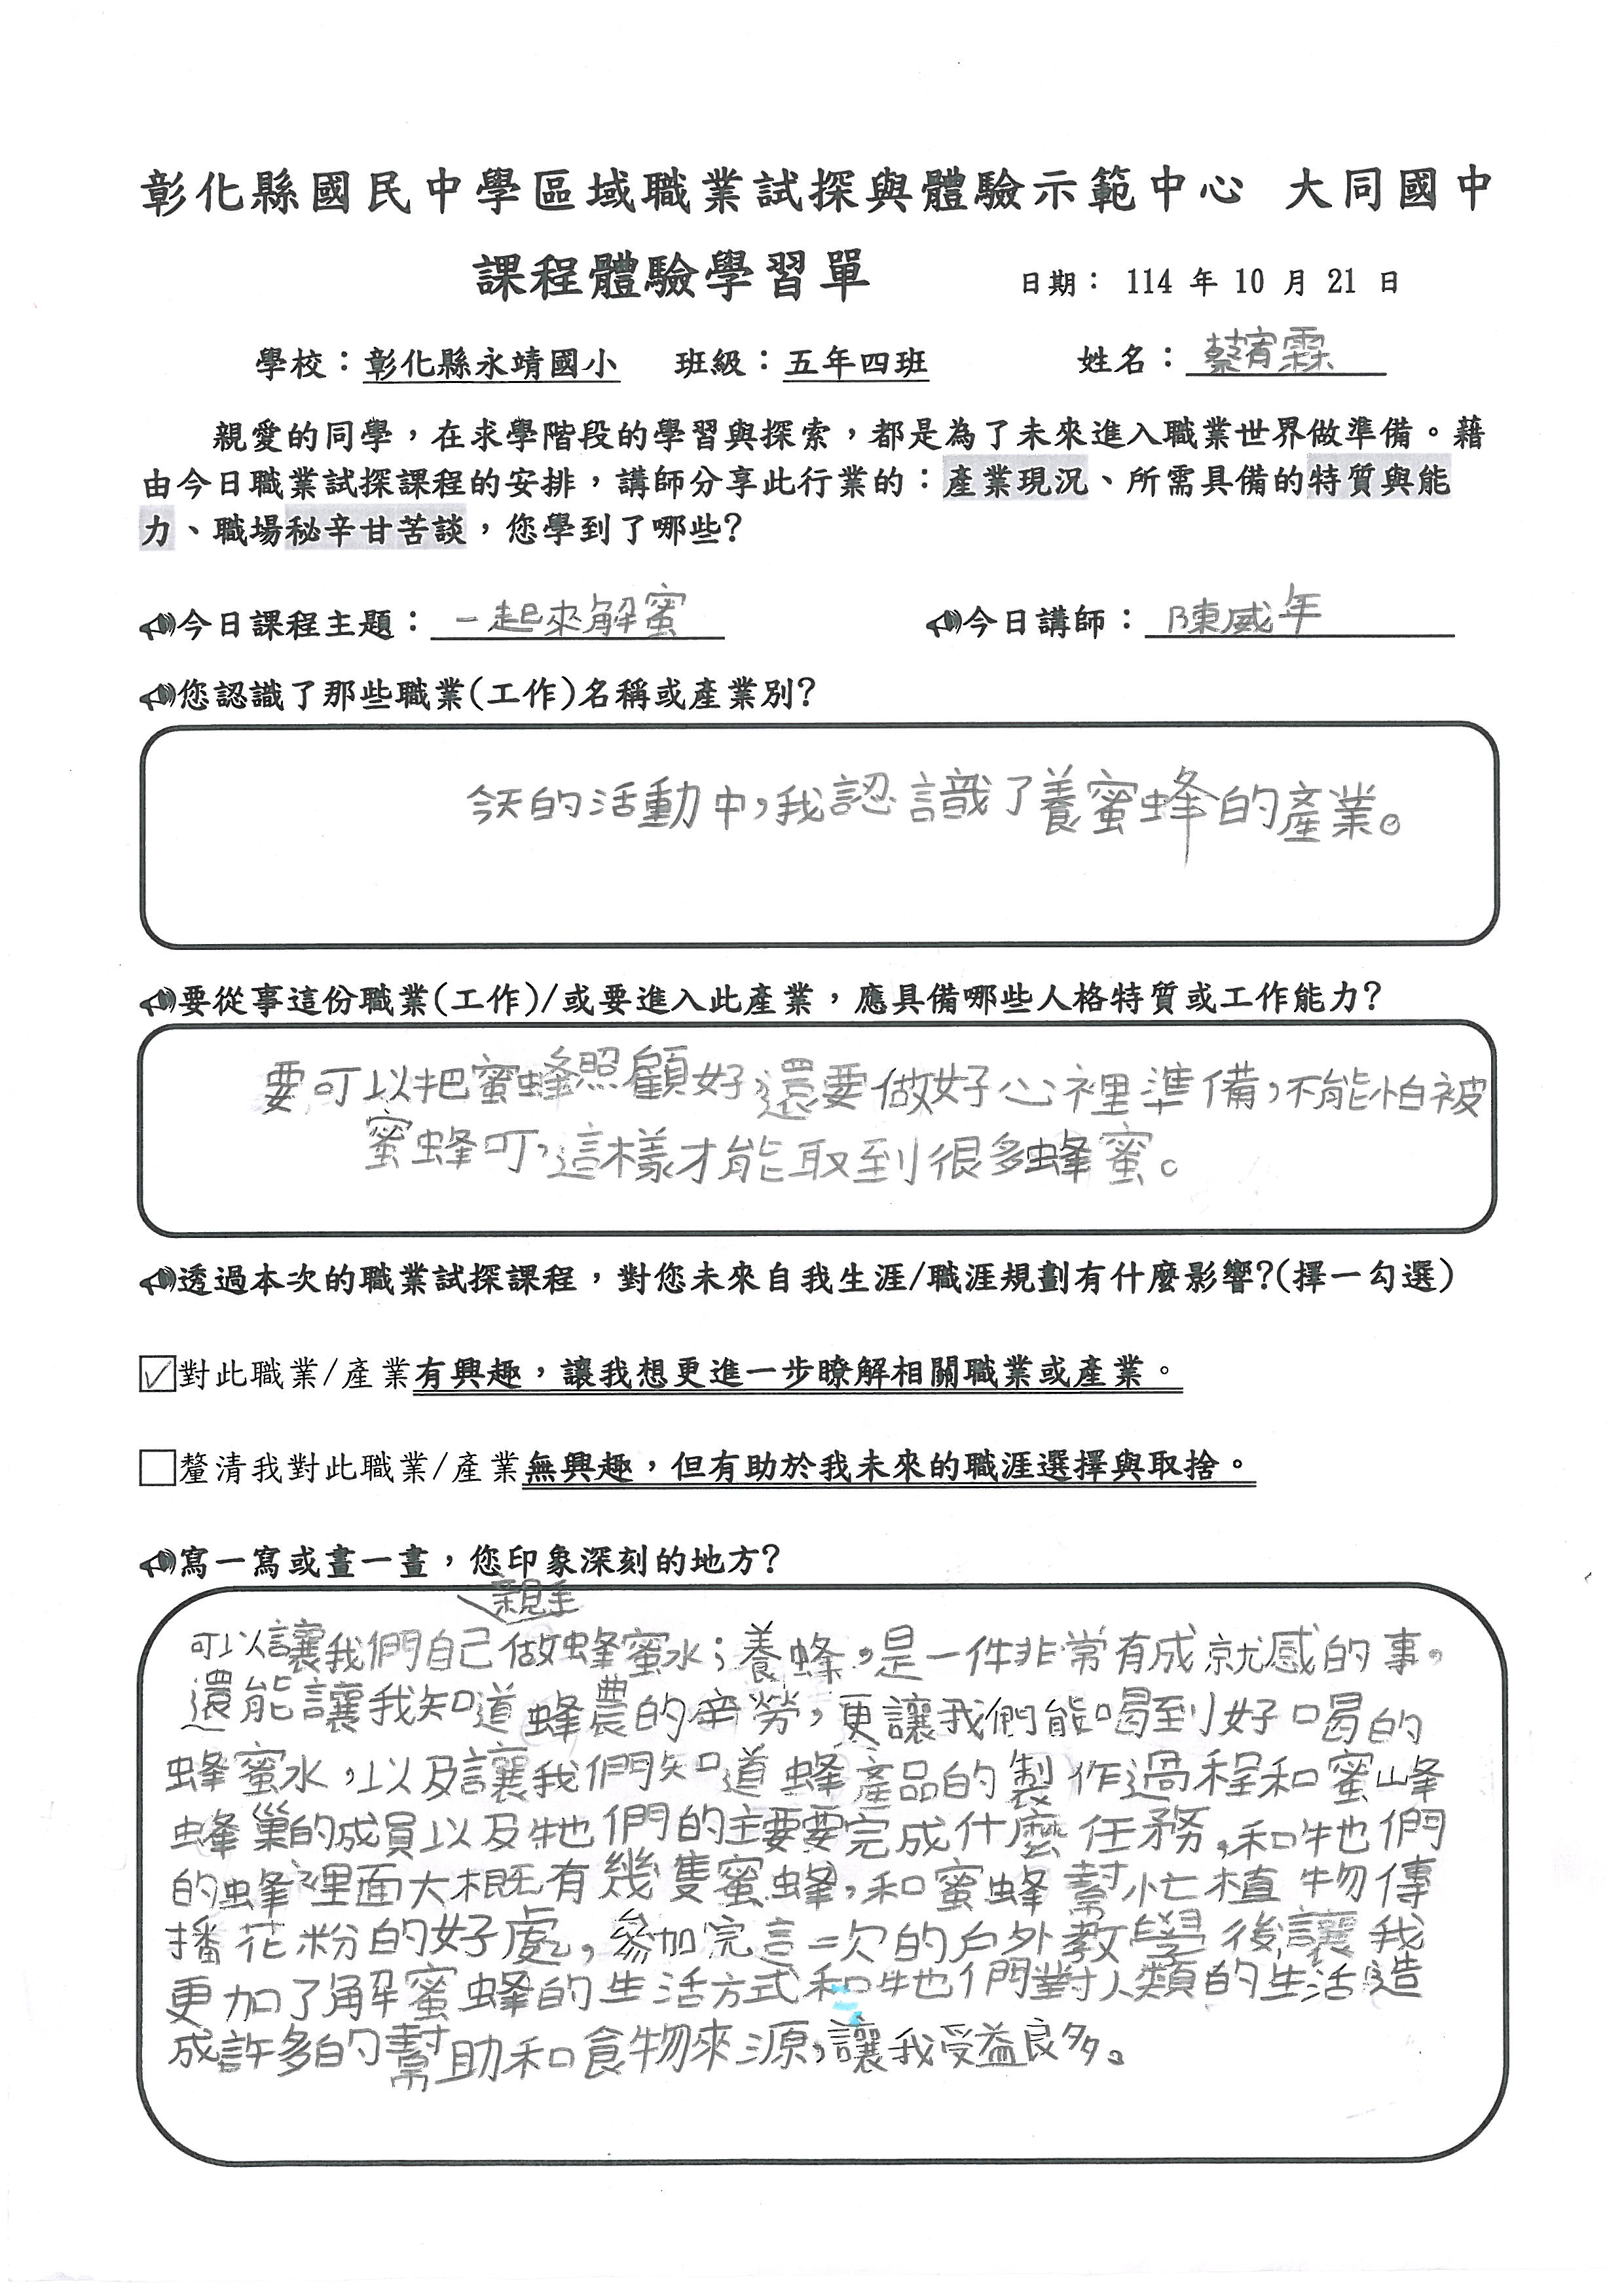 彰化縣國民中學區域職業試探與體驗示範中心 大同國中
課程體驗學習單 日期： 114 年 10 月 21 日
學校：彰化縣永靖國小 班級：五年四班 姓名：蔡宥霖
親愛的同學，在求學階段的學習與探索，都是為了未來進入職業世界做準備。藉
由今日職業試探課程的安排，講師分享此行業的：產業現況、所需具備的特質與能
力、職場秘辛甘苦談，您學到了哪些?
今日課程主題：一起來解蜜 今日講師：陳威年
您認識了那些職業(工作)名稱或產業別?
今天的活動中，我認識了養蜜蜂的產業。
要從事這份職業(工作)/或要進入此產業，應具備哪些人格特質或工作能力?
要可以把蜜蜂照顧好還要做好心裡準備，不能怕被
蜜蜂叮，這樣才能取到很多蜂蜜。
透過本次的職業試探課程，對您未來自我生涯/職涯規劃有什麼影響?(擇一勾選)
☑對此職業/產業有興趣，讓我想更進一步瞭解相關職業或產業。
☐釐清我對此職業/產業無興趣，但有助於我未來的職涯選擇與取捨。
寫一寫或畫一畫，您印象深刻的地方?
親手
可以讓我們自己做蜂蜜水；養蜂，是一件非常有成就感的事，
還能讓我知道蜂農的辛勞，更讓我們能喝到好喝的
蜂蜜水，以及讓我們知道蜂產品的製作過程和蜜蜂
蜂巢的成員以及牠們的主要要完成什麼任務，和牠們
的蜂裡面大概有幾隻蜜蜂，和蜜蜂幫忙植物傳
播花粉的好處，參加完這一次的戶外教學後讓我
更加了解蜜蜂的生活方式和牠們對人類的生活造
成許多的幫助和食物來源，讓我受益良多。